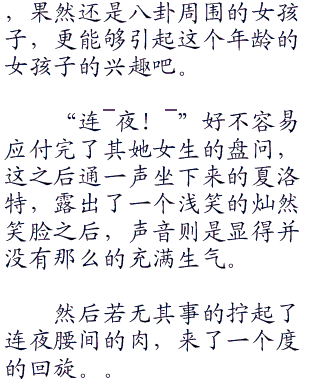 ，果然还是八卦周围的女孩
子，更能够引起这个年龄的
女孩子的兴趣吧。
“连¯夜！¯”好不容易
应付完了其她女生的盘问，
这之后通一声坐下来的夏洛
特，露出了一个浅笑的灿然
笑脸之后，声音则是显得并
没有那么的充满生气。
然后若无其事的拧起了
连夜腰间的肉，来了一个度
的回旋。。